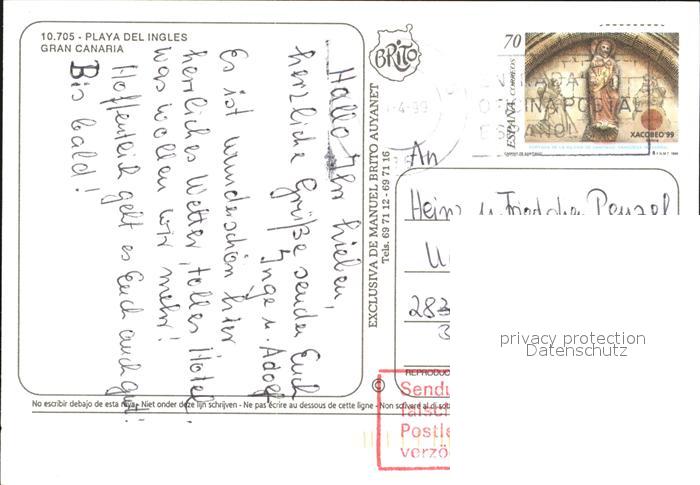 10.705 - PLAYA DEL INGLES
GRAN CANARIA
Hallo Ihr Lieben,
herzliche Grüße senden Euch
Inge u. Adolf
Es ist wunderschön hier
herrliches Wetter, tolles Hotel
was wollen wir mehr!
Hoffentlich geht es Euch auch gut!
Bis bald!
BRITO
EXCLUSIVA DE MANUEL BRITO AUYANET
Tels. 69 71 12 - 69 71 16
70
ESPAÑA CORREOS
XACOBEO'99
CAMINO DE SANTIAGO
-4-99
OFICINA POSTAL
ESPAÑOL
An
Heinz u. Penzel
283
REPRODUC
©
Sendu
falsch
Postle
verzö
No escribir debajo de esta raya - Niet onder deze lijn schrijven - Ne pas écrire au dessous de cette ligne - Non scrivere al di sotto
privacy protection
Datenschutz